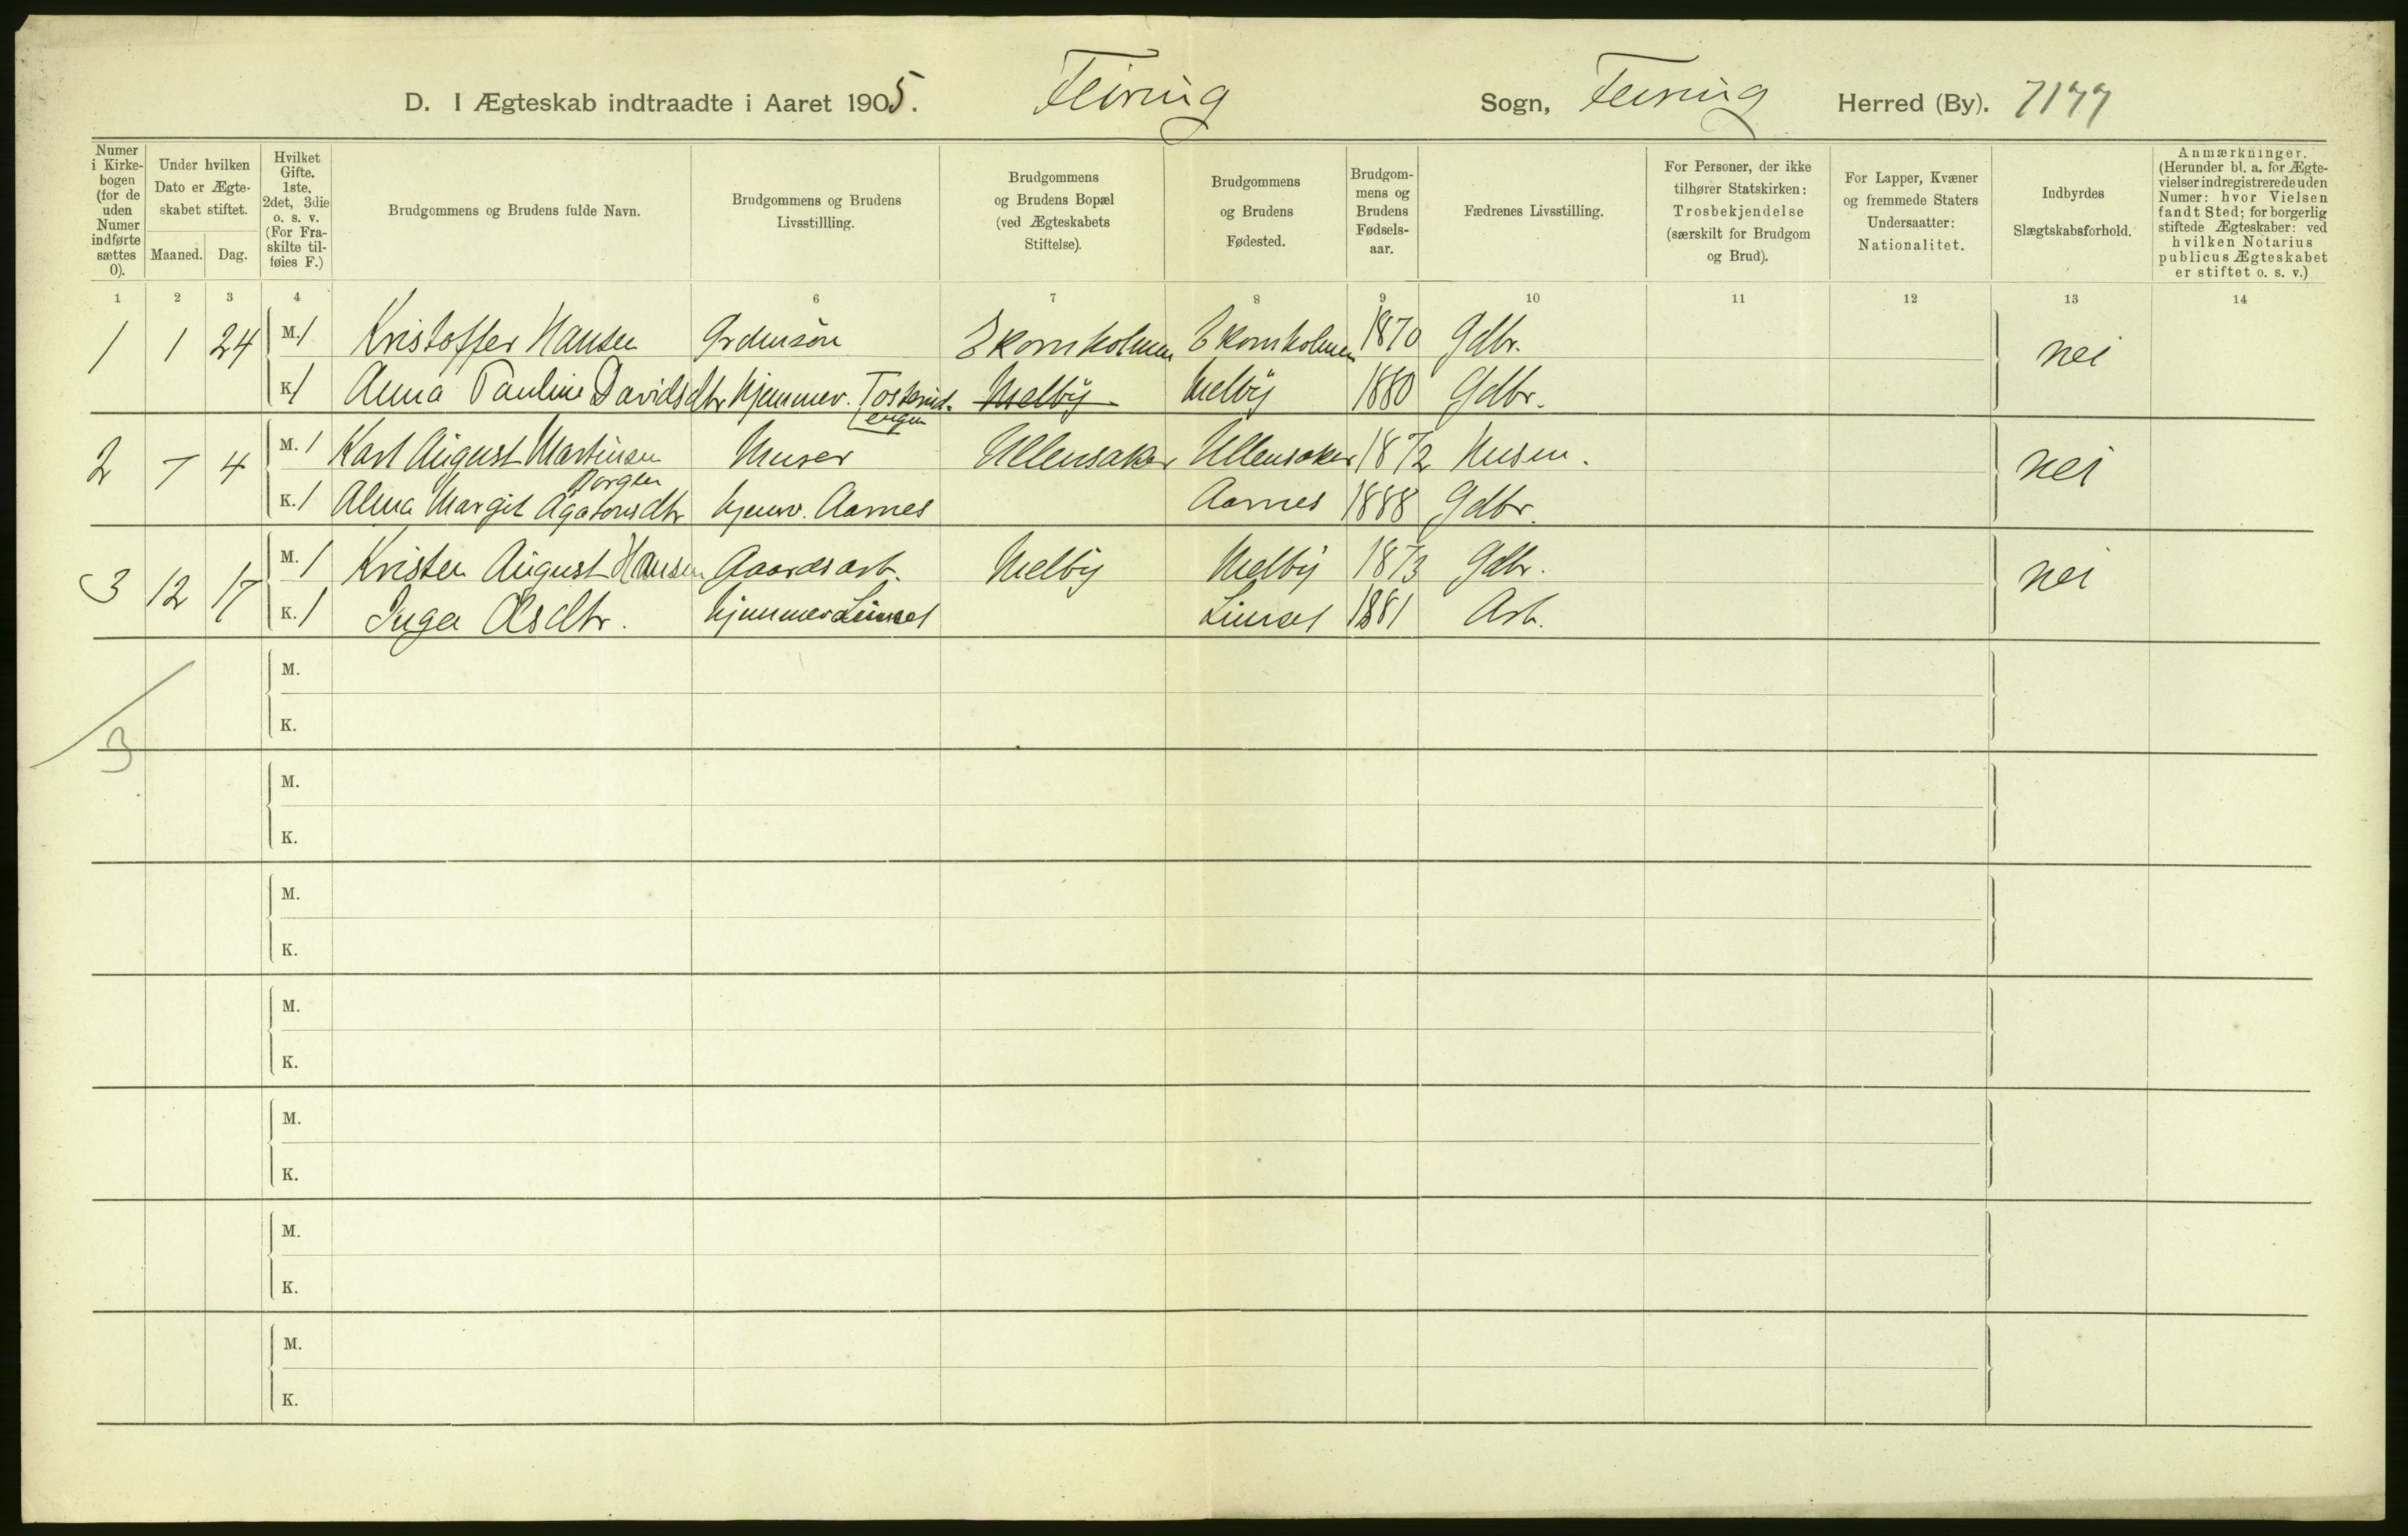 D. I Ægteskab indtraadte i Aaret 1905. Feiring Sogn, Feiring Herred (By). 7177
Numer i Kirkebogen (for de uden Numer indførte sættes 0).
Under hvilken Dato er Ægteskabet stiftet.
Maaned. Dag.
Hvilket Gifte. 1ste, 2det, 3die o. s. v. (For Fraskilte tilføies F.)
Brudgommens og Brudens fulde Navn.
Brudgommens og Brudens Livsstillling.
Brudgommens og Brudens Bopæl (ved Ægteskabets Stiftelse).
Brudgommens og Brudens Fødested.
Brudgommens og Brudens Fødselsaar.
Fædrenes Livsstilling.
For Personer, der ikke tilhører Statskirken: Trosbekjendelse (særskilt for Brudgom og Brud).
For Lapper, Kvæner og fremmede Staters Undersaatter: Nationalitet.
Indbyrdes Slægtskabsforhold.
Anmærkninger. (Herunder bl. a. for Ægtevielser indregistrerede uden Numer: hvor Vielsen fandt Sted; for borgerlig stiftede Ægteskaber: ved hvilken Notarius publicus Ægteskabet er stiftet o. s. v.)
1 2 3 4 6 7 8 9 10 11 12 13 14
1 1 24 M. 1 Kristoffer Hansen Grdmsøn Ekornholmen Ekornholmen 1870 Gdbr. nei
K. 1 Anna Pauline Davidsdtr hjemmev. Melby Melby 1880 Gdbr.
engen
2 7 4 M. 1 Karl August Martinsen Murer Ullensaker Ullensaker 1872 nei
Borgen
K. 1 Alma Margit Agatonsdtr hjemv. Aarnes Aarnes 1888 Gdbr.
3 12 17 M. 1 Kristen August Hansen Gaardsarb. Melby Melby 1873 Gdbr. nei
K. 1 Inga Olsdtr. hjemmev Linset Linset 1881 Arb.
M.
K.
3
M.
K.
M.
K.
M.
K.
M.
K.
M.
K.
M.
K.